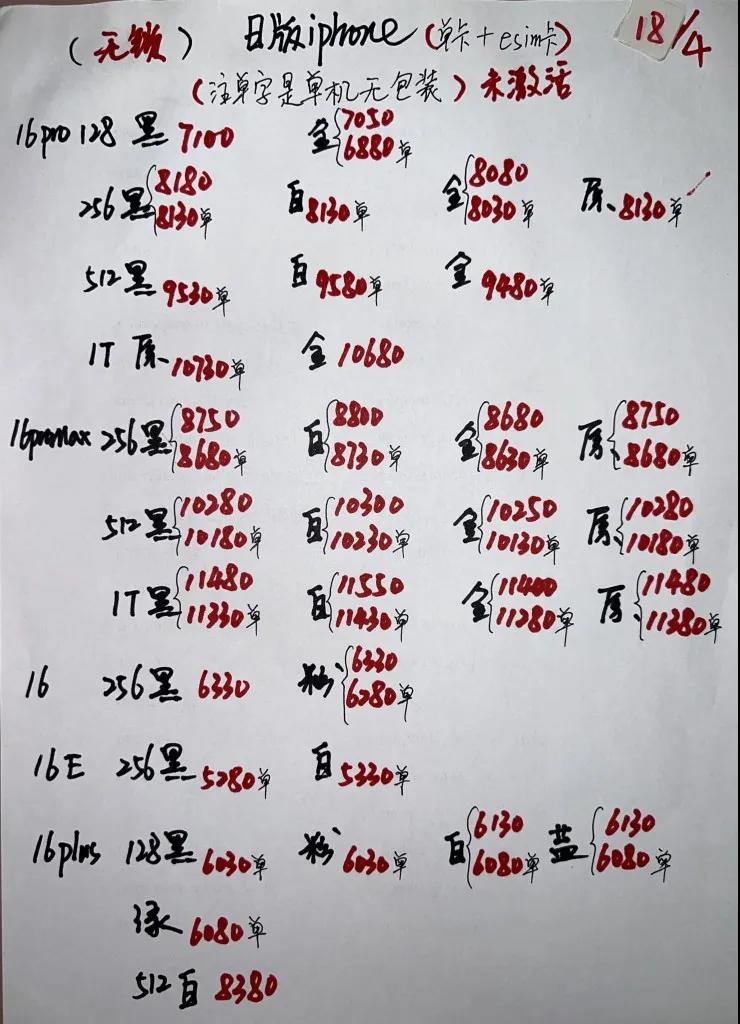 (无锁) 日版iphone (单卡+esim卡) 18/4
(注单字是单机无包装) 未激活
16pro 128 黑 7100 金{7050 6880单
256 黑{8180 8130单 白8130单 金{8080 8030单 原8130单
512 黑9530单 白9580单 金9480单
1T 原10730单 金10680
16promax 256 黑{8750 8680单 白{8800 8730单 金{8680 8630单 原{8750 8680单
512 黑{10280 10180单 白{10300 10230单 金{10250 10130单 原{10280 10180单
1T 黑{11480 11330单 白{11550 11430单 金{11400 11280单 原{11480 11380单
16 256 黑 6330 粉{6330 6280单
16E 256 黑5280单 白5330单
16plus 128 黑6030单 粉6030单 白{6130 6080单 蓝{6130 6080单
绿6080单
512 白 8380